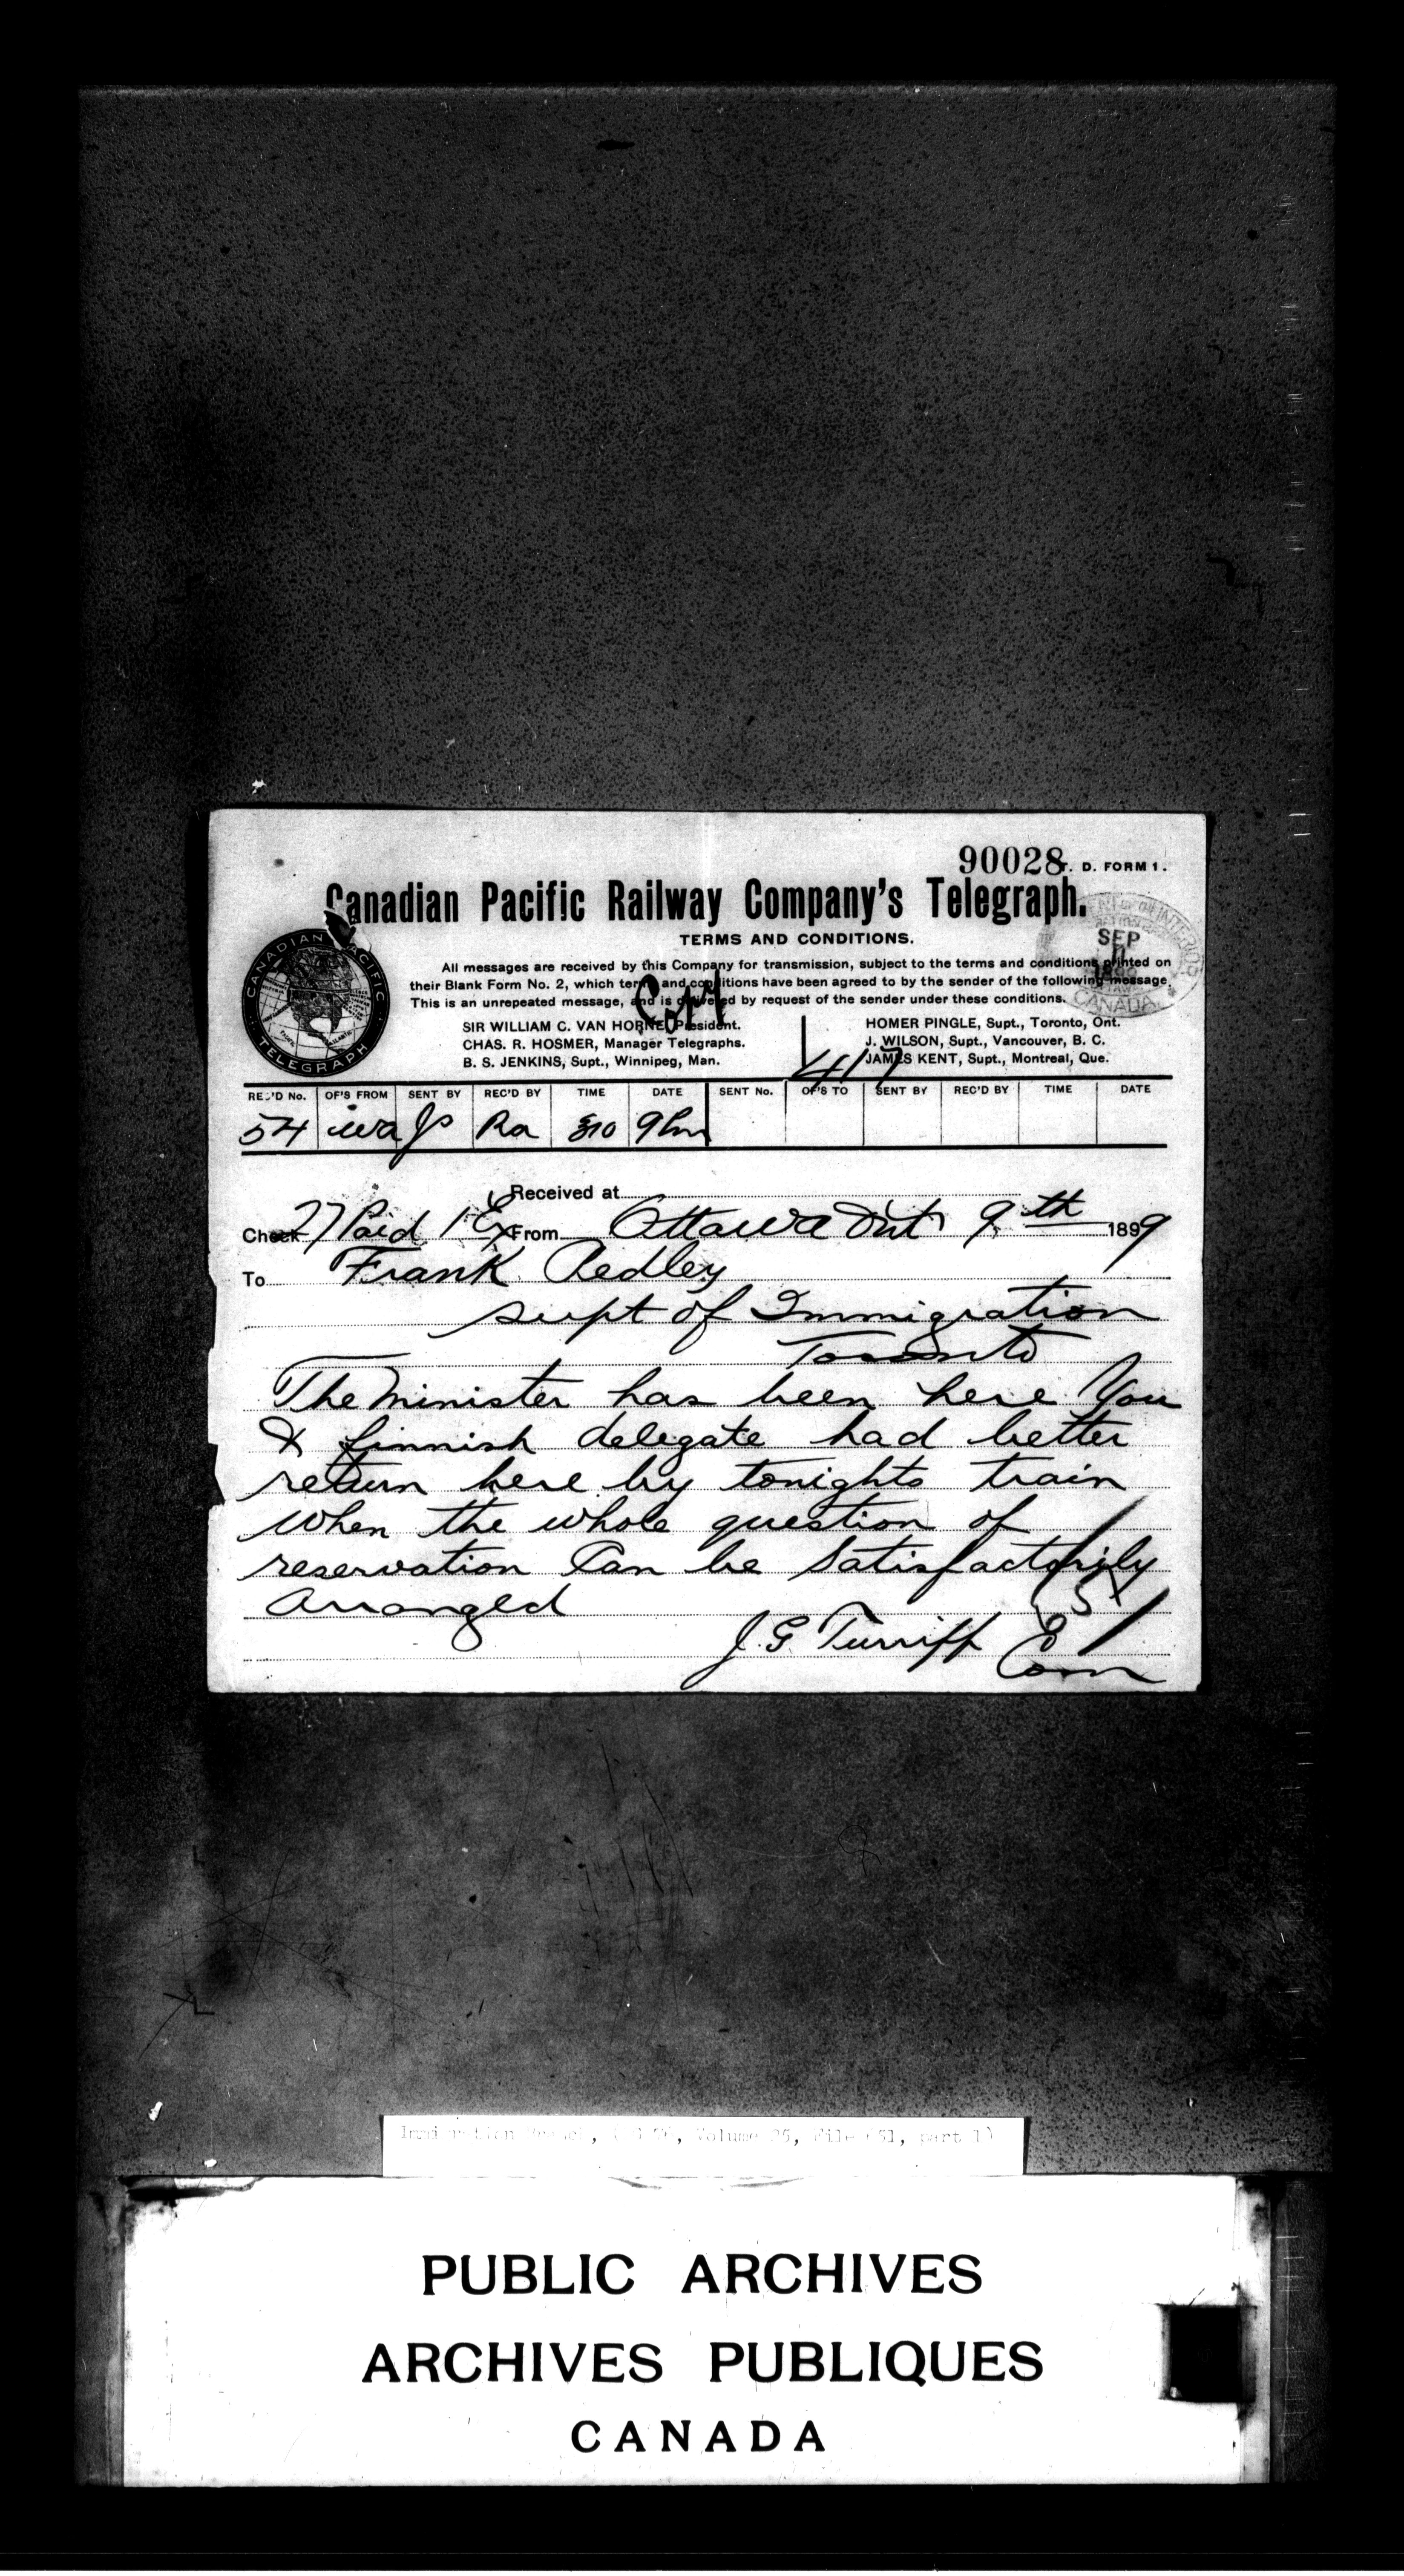 90028 T. D. FORM 1.
Canadian Pacific Railway Company's Telegraph.
TERMS AND CONDITIONS.
All messages are received by this Company for transmission, subject to the terms and conditions printed on
their Blank Form No. 2, which terms and conditions have been agreed to by the sender of the following message.
This is an unrepeated message, and is delivered by request of the sender under these conditions.
CANADIAN PACIFIC
TELEGRAPH
SEP
CANADA
SIR WILLIAM C. VAN HORNE, President.
CHAS. R. HOSMER, Manager Telegraphs.
B. S. JENKINS, Supt., Winnipeg, Man.
HOMER PINGLE, Supt., Toronto, Ont.
J. WILSON, Supt., Vancouver, B. C.
JAMES KENT, Supt., Montreal, Que.
417
REC'D No. OF'S FROM SENT BY REC'D BY TIME DATE SENT No. OF'S TO SENT BY REC'D BY TIME DATE
54 Ra 310
Received at
Check 27 Paid 1 Ex From Ottawa Ont 9th 1899
To Frank Pedley
supt of Immigration
Toronto
The Minister has been here You
& finnish delegate had better
return here by tonights train
when the whole question of
reservation Can be Satisfactorily
Arranged
J. G Turriff Com
Immigration Branch, Volume 25, File 651, part 1)
PUBLIC ARCHIVES
ARCHIVES PUBLIQUES
CANADA